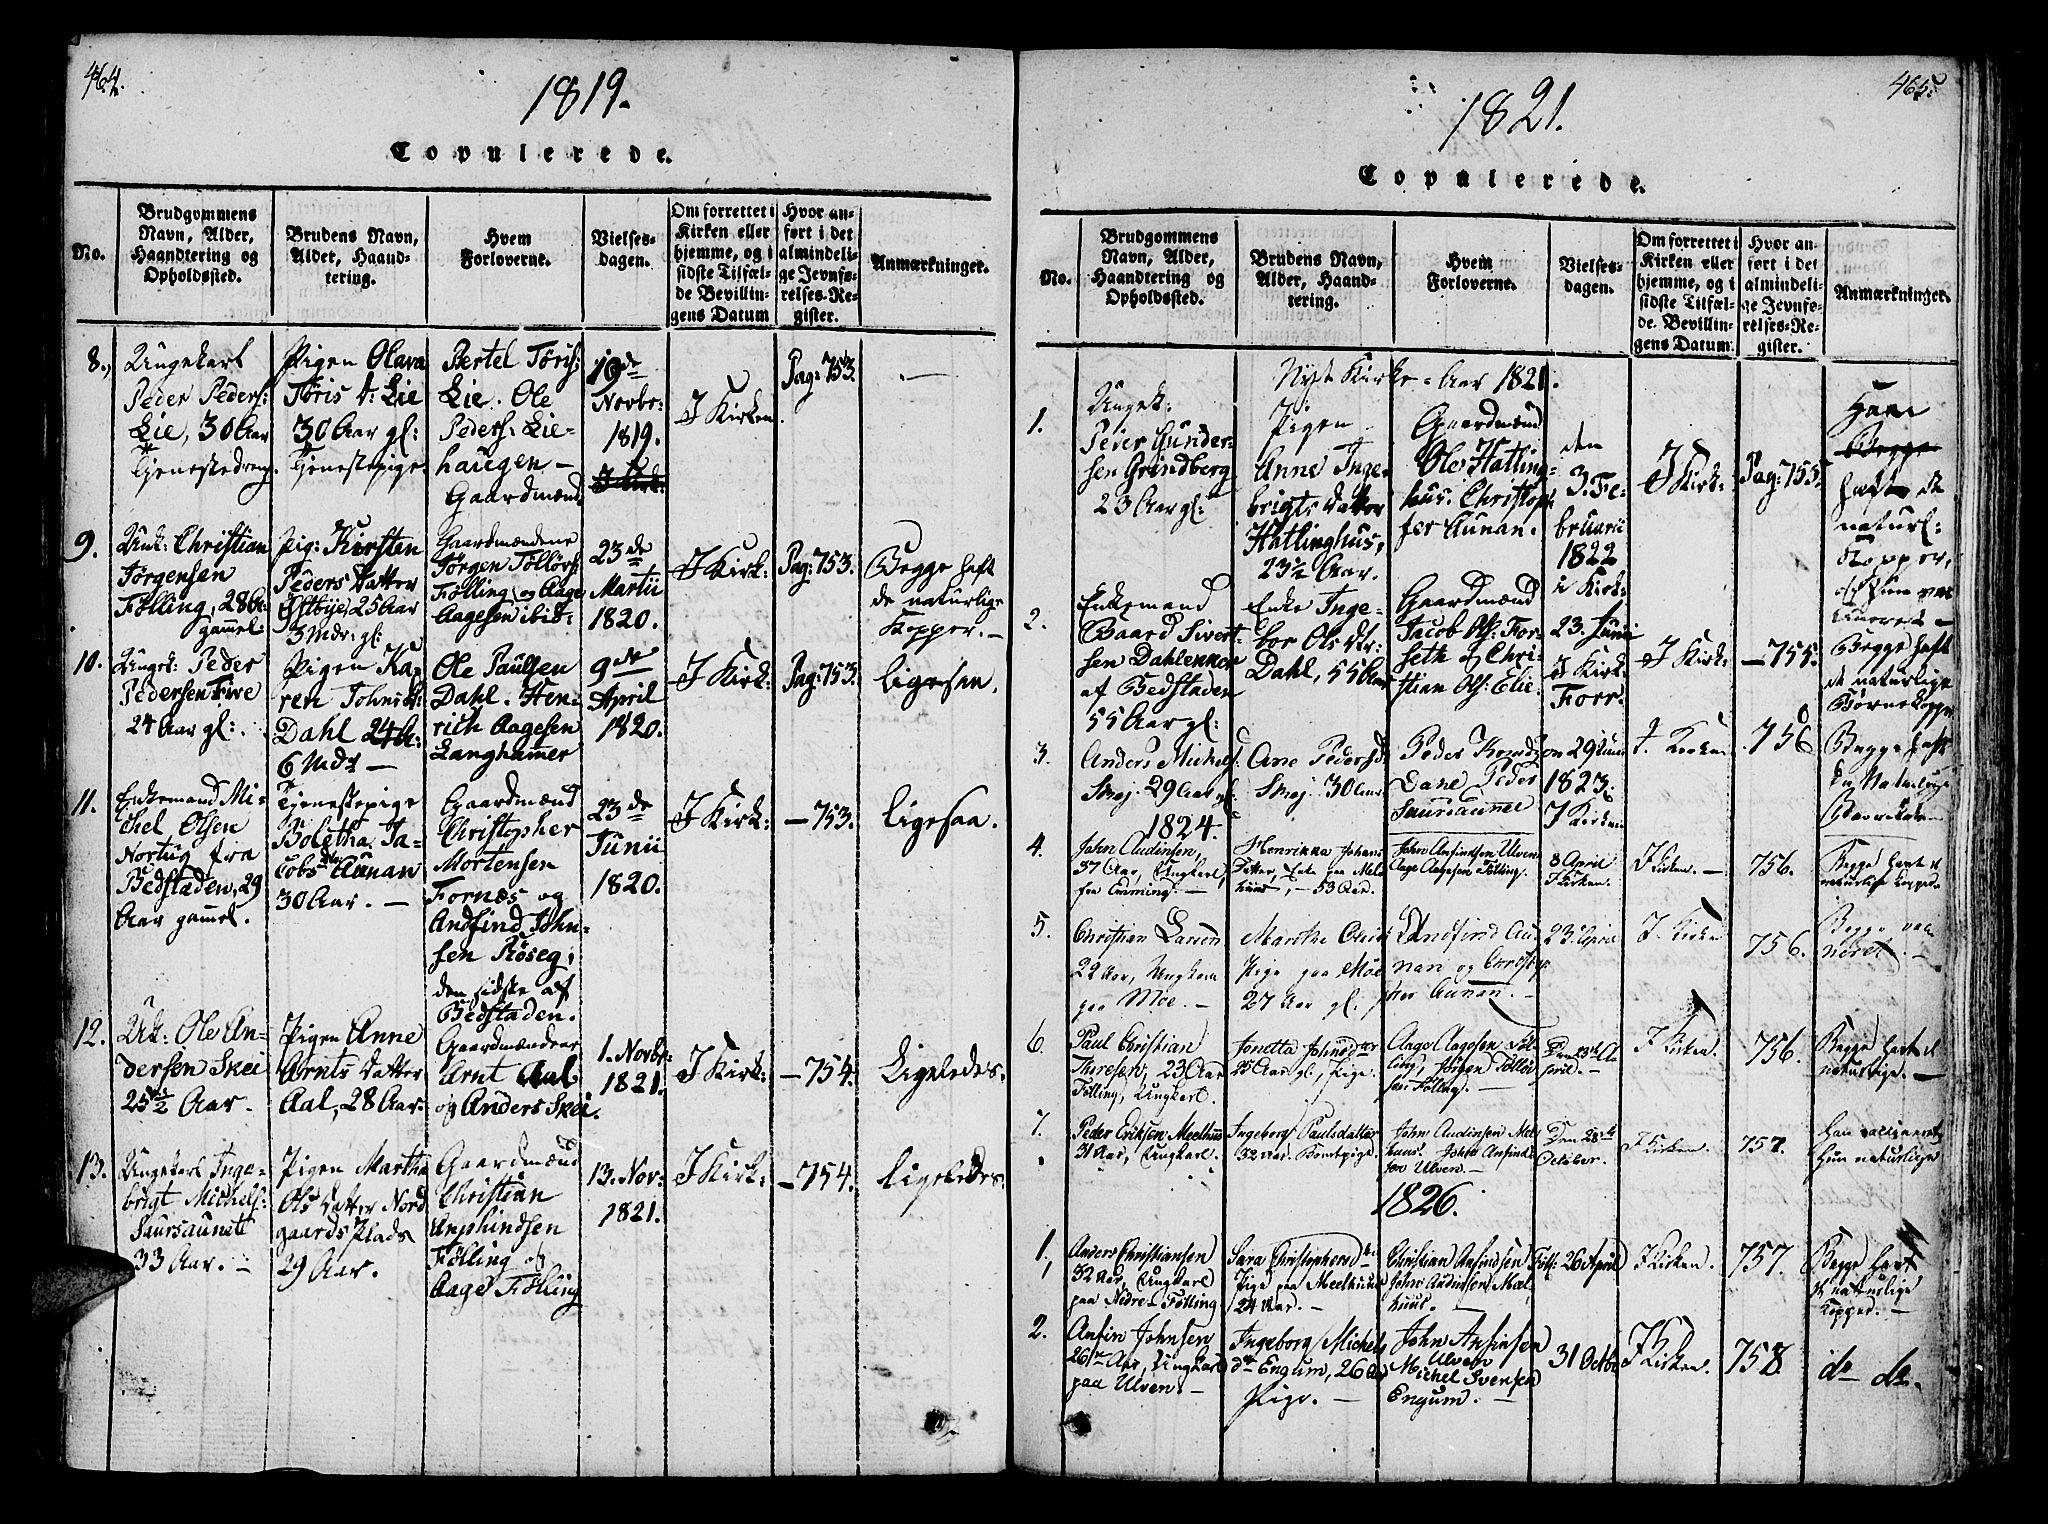 464.
1819.
Copulerede.
No.
Brudgommens
Navn, Alder,
Haandtering og
Opholdssted.
Brudens Navn,
Alder, Haand-
tering.
Hvem
Forloverne.
Vielses-
dagen.
Om forrettet i
Kirken eller
hjemme, og i
sidste Tilfæl-
de Bevillin-
gens Datum
Hvor an-
ført i det
almindeli-
ge Jevnfø-
relses-Re-
gister.
Anmærkninger.
8.
Ungekarl
Peder Peders:
Lie, 30 Aar
Tjenestedreng
Pigen Olava
Tøris d: Lie
30 Aar gl:
Tjenestepige
Bertel Tøris:
Lie. Ole
Peders: Lie-
haugen -
Gaardmænd
19de
Novbr:
1819.
I Kirk:
I Kirken
Pag: 753.
9.
Unk: Christian
Jørgensen
Følling, 28 Aar
gammel:
Pig: Kirsten
Peders Datter
Østbye, 25 Aar
3 Mdr: gl:
Gaardmændene
Jørgen Tollørs:
Følling og Aage
Aagesen ibid:
23de
Martii
1820.
I Kirk:
Pag: 753.
Begge haft
de naturlige
Kopper. -
10.
Ungk: Peder
Pedersen Five
24 Aar gl:
Pigen Ka-
ren Johns d:
Dahl 24 A:
6 Mdr -
Ole Paulsen
Dahl. Hen-
rich Aagesen
Langhamer
9de
April
1820.
I Kirk:
Pag: 753.
ligesaa.
11.
Enkemand Mi-
chel Olsen
Nortug fra
Bedstaden, 29
Aar gamel.
Tjenestepige
Boletha Ja-
cobs dtr Aunan
30 Aar. -
Gaardmænd
Christopher
Mortensen
Fornæs og
Andfind John-
sen Røseg,
den sidste af
Bedstaden.
23de
Junii
1820.
I Kirk:
- 753.
ligesaa.
12.
Uk: Ole An-
dersen Skei
25 1/2 Aar.
Pigen Anne
Arnts Datter
Aal, 28 Aar.
Gaardmændene
Arnt Aal
og Anders Skei.
1. Novbr:
1821.
I Kirk:
- 754.
Ligeledes.
13.
Ungekarl Inge-
brigt Michels:
Saursaunet
33 Aar. -
Pigen Martha
Ols Datter Nord
gaards Plads
29 Aar.
Gaardmænd
Christian
Anphindsen
Følling og
Aage Følling
13. Nov:
1821.
I Kirk:
- 754.
ligeledes.
465.
1821.
Copulerede.
No.
Brudgommens
Navn, Alder,
Haandtering og
Opholdssted.
Brudens Navn,
Alder, Haand-
tering.
Hvem
Forloverne.
Vielses-
dagen.
Om forrettet i
Kirken eller
hjemme, og i
sidste Tilfæl-
de Bevillin-
gens Datum.
Hvor an-
ført i det
almindeli-
ge Jevnfø-
relses-Re-
gister.
Anmærkninger.
Nyt Kirke-Aar 1821.
1.
Ungk:
Peder Gunder-
sen Grindberg
23 Aar gl:
Pigen
Anne Inge-
brigts Datter
Hatlinghus,
23 1/2 Aar.
Gaardmænd
Ole Hatling-
hus. Christop-
fer Aunan.
den
3. Fe-
bruarii
1822
i Kirk:
I Kirk:
Pag: 755.
Han
Begge
haft de
naturl:
Kopper,
og hun var
2.
Enkemand
Baard Sivert-
sen Dahlennon
af Bedstaden
55 Aar gl:
Enke Inge-
bor Ols Dtr:
Dahl, 55 Aar
Gaardmænd
Jacob Ols: For-
seth og Chri-
stian Ols: Elie
23. Junii
I Kirk:
Forr.
I Kirk:
- 755.
Begge haft
de naturlige
Børnekopper
3.
Anders Michels:
Smaj. 29 Aar gl.
Ane Pedersd
Smaj. 30 Aar
Peder
Dane Peder
Saursaunet
29 Juni
1823.
I Kirken
I Kirken
756
Begge haft
1824.
4.
John Audinsen,
37 Aar, Ungkarl,
fra Emming. -
Henrikka Johans
Datter,
- 53 Aar.
John Ansindsen Ulven
Aage Aagesen Følling.
8 April
I Kirken.
I Kirken. -
756.
Begge havt d
naturlige Koppe
5.
Christian Larsen
22 Aar, Ungkarl
paa Moe. -
Marthe Olsd
Pige paa Moe
27 Aar gl:
Andfind Au-
nan og Christop
her Aunan. -
23. April
I Kirken
756.
Begge
6.
Paul Christian
Thoresen, 23 Aar
Følling, Ungkarl.
Jonetta Johnsdtr
25 Aar gl, Pige.
Aage Aagesen Føl-
ling, Jørgen Tollør
sen Følling.
Den 23de A-
pril.
I Kirken.
756.
Begge havt d
naturlige. -
7.
Peder Eriksen Meelhuus
31 Aar, Ungkarl.
Ingeborg Paulsdatter
32 Aar. Bondepige.
John Audinsen Mel-
huus. John Ansind-
sen Ulven. -
Den 28de
October.
I Kirken.
757.
Han vaccineret
Hun naturlige
1826.
1,
Anders Christiansen
32 Aar, Ungkarl
paa Nedre-Følling
Sara Christophersdtr
Pige paa Meelhuus
24 Aar. -
Christian Ansindsen Føll:
John Audinsen Meel
huus. -
26 April
I Kirken.
757.
Begge havt
d naturlige
Kopper. -
2.
Ansin Johnsen
26 Aar, Ungkarl
paa Ulven. -
Ingeborg Michels
dtr Engum, 26 Aar
Pige. -
John Ansinsen
Ulven
Michel Svensen
Engum. -
31 Octbr
I Kirken.
758.
do do.